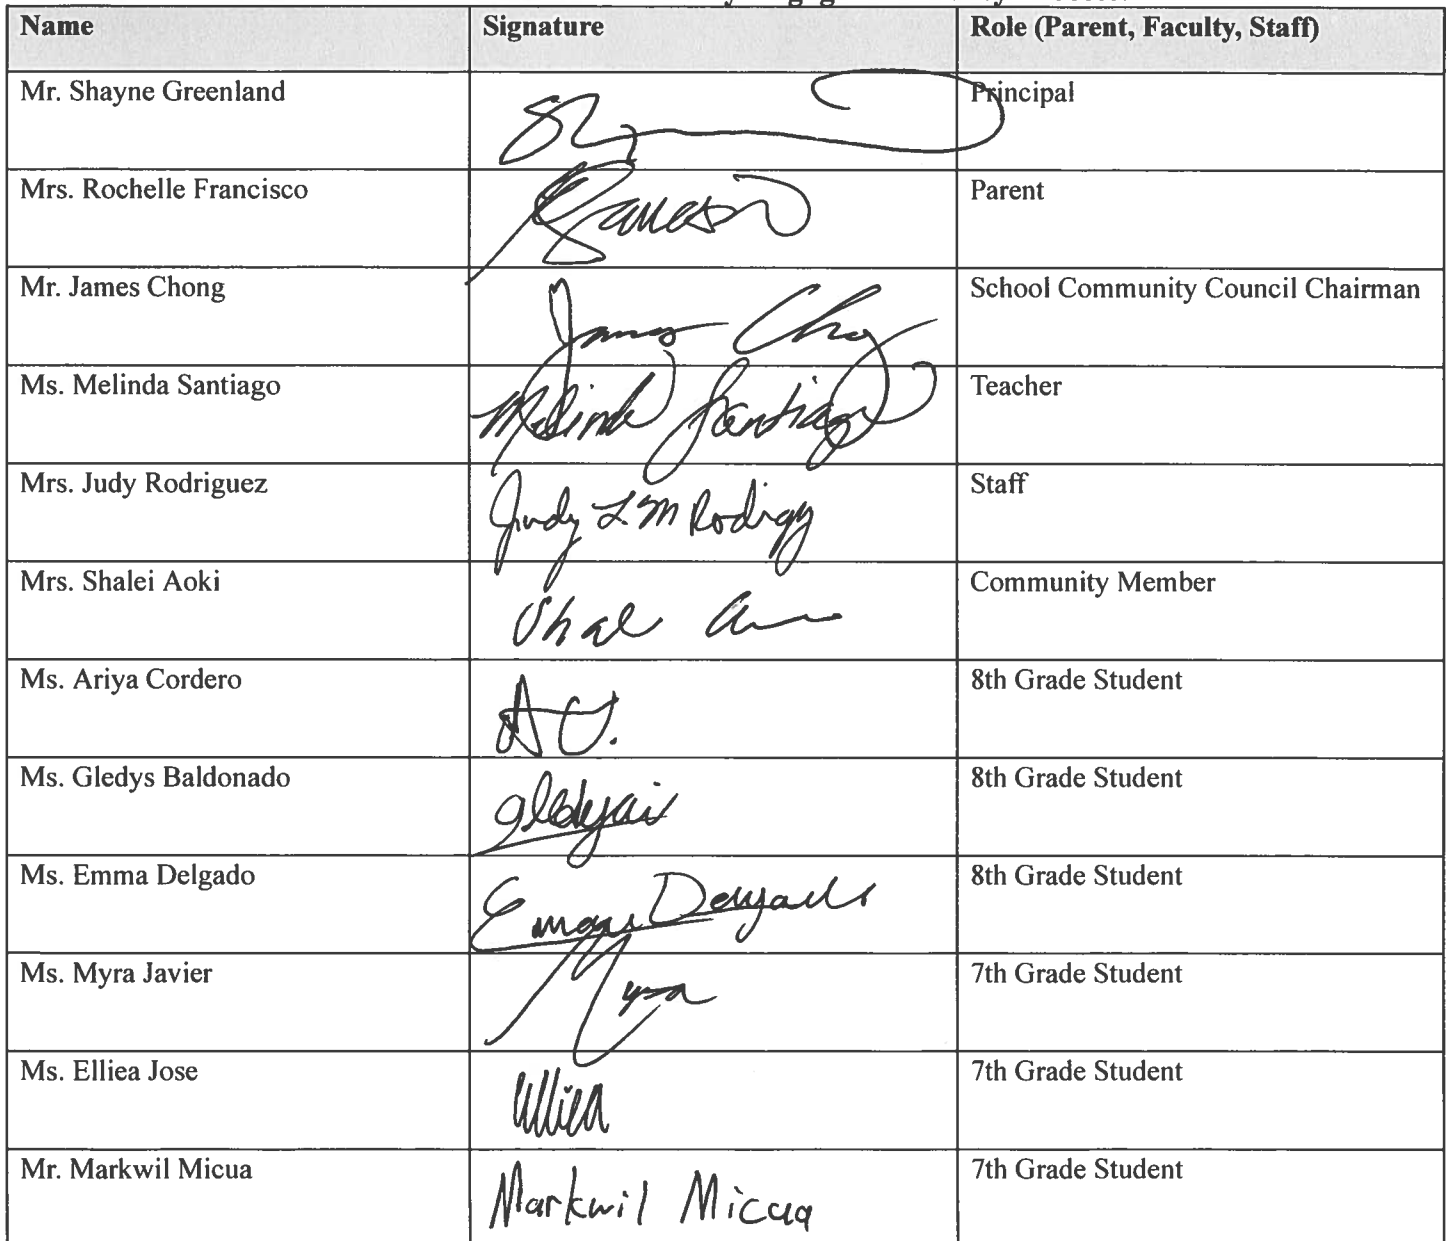 Name Signature Role (Parent, Faculty, Staff)
Mr. Shayne Greenland Principal
Mrs. Rochelle Francisco Parent
Mr. James Chong James Cho School Community Council Chairman
Ms. Melinda Santiago Melinda Santiago Teacher
Mrs. Judy Rodriguez Judy L M Rodrigz Staff
Mrs. Shalei Aoki Community Member
Ms. Ariya Cordero A C. 8th Grade Student
Ms. Gledys Baldonado 8th Grade Student
Ms. Emma Delgado Emma Delgado 8th Grade Student
Ms. Myra Javier Myra 7th Grade Student
Ms. Elliea Jose Elliea 7th Grade Student
Mr. Markwil Micua Markwil Micua 7th Grade Student